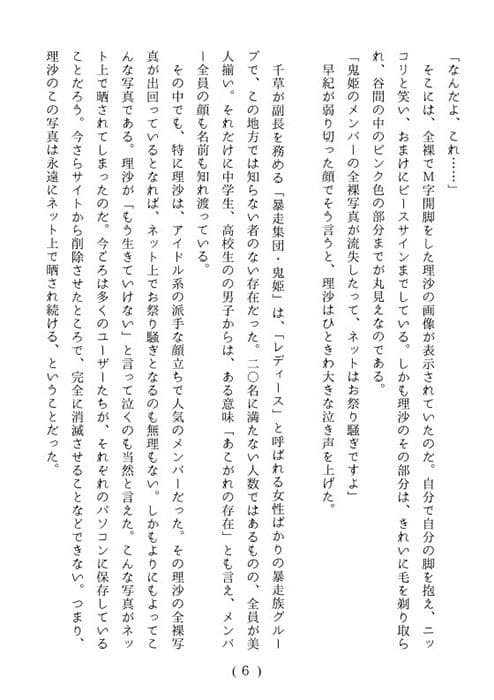 「なんだよ、これ……」
そこには、全裸でＭ字開脚をした理沙の画像が表示されていたのだ。自分で自分の脚を抱え、ニッ
コリと笑い、おまけにピースサインまでしている。しかも理沙のその部分は、きれいに毛を剃り取ら
れ、谷間の中のピンク色の部分までが丸見えなのである。
「鬼姫のメンバーの全裸写真が流失したって、ネットはお祭り騒ぎですよ」
早紀が弱り切った顔でそう言うと、理沙はひときわ大きな泣き声を上げた。
千草が副長を務める「暴走集団・鬼姫」は、「レディース」と呼ばれる女性ばかりの暴走族グルー
プで、この地方では知らない者のない存在だった。二〇名に満たない人数ではあるものの、全員が美
人揃い。それだけに中学生、高校生のの男子からは、ある意味「あこがれの存在」とも言え、メンバ
ー全員の顔も名前も知れ渡っている。
その中でも、特に理沙は、アイドル系の派手な顔立ちで人気のメンバーだった。その理沙の全裸写
真が出回っているとなれば、ネット上でお祭り騒ぎとなるのも無理もない。しかもよりにもよってこ
んな写真である。理沙が「もう生きていけない」と言って泣くのも当然と言えた。こんな写真がネッ
ト上で晒されてしまったのだ。今ごろは多くのユーザーたちが、それぞれのパソコンに保存している
ことだろう。今さらサイトから削除させたところで、完全に消滅させることなどできない。つまり、
理沙のこの写真は永遠にネット上で晒され続ける、ということだった。
(６)